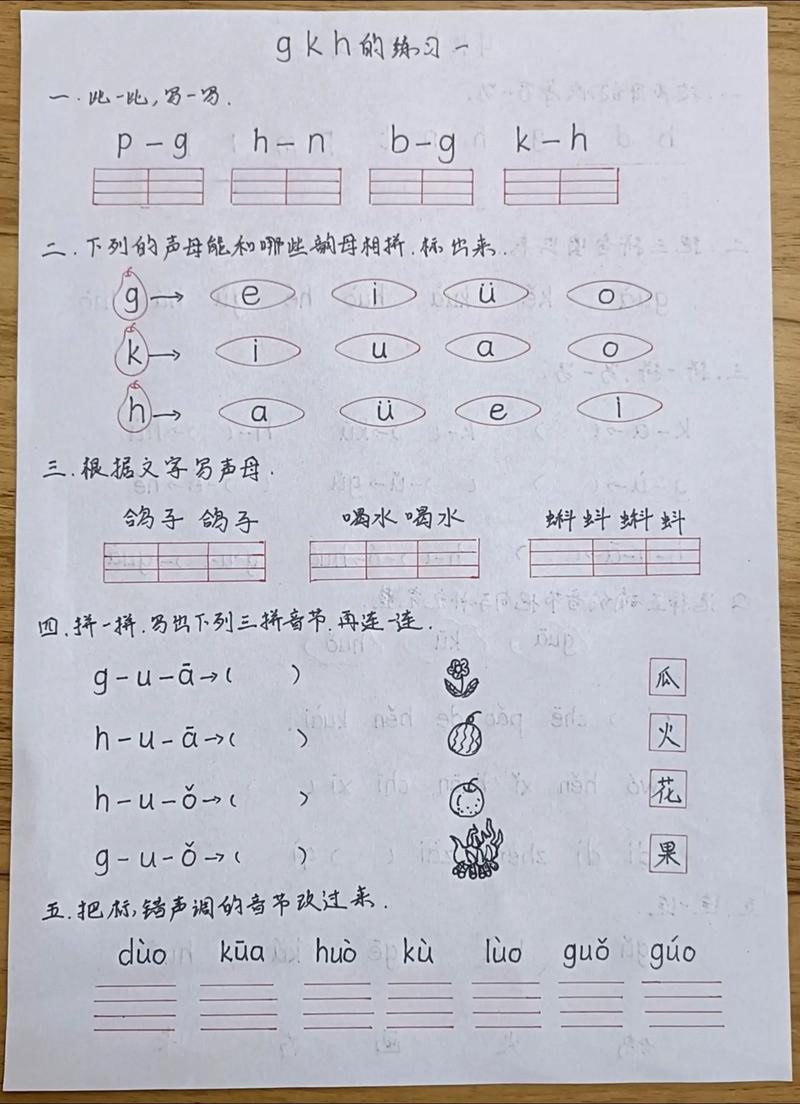 g k h的练习一
一.比一比,写一写.
p－g h－n b－g k－h
二.下列的声母能和哪些韵母相拼.标出来.
g→ e i ü o
k→ i u a o
h→ a ü e i
三.根据文字写声母.
鸽子 鸽子 喝水 喝水 蝌蚪 蝌蚪
四.拼一拼.写出下列三拼音节.再连一连.
g－u－ā→( ) 瓜
h－u－ā→( ) 火
h－u－ǒ→( ) 花
g－u－ǒ→( ) 果
五.把标错声调的音节改过来.
dùo kūa huò kù lùo guǒ gúo